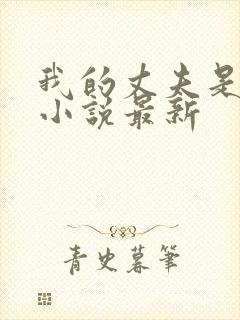 我的丈夫是
小说最新
青史暮筆